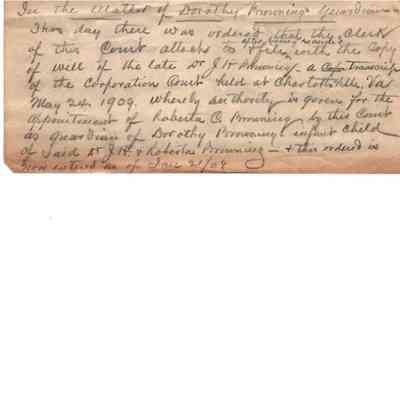 In the Matter of Dorothy Browning's Guardian
This day there was ordered that the Clerk
after being recorded
of this Court attachs to & file with the Copy
of will of the late Dr J. H. Browning - a Copy Transcript
of the Corporation Court held at Charlottsville, Va
May 24. 1909. whereby authority is given for the
appointment of Roberta C. Browning by this Court
as guardian of Dorothy Browning infant child
of said Dr J. H. & Roberta Browning - & this ordered is
now entered as of Jan 21/09